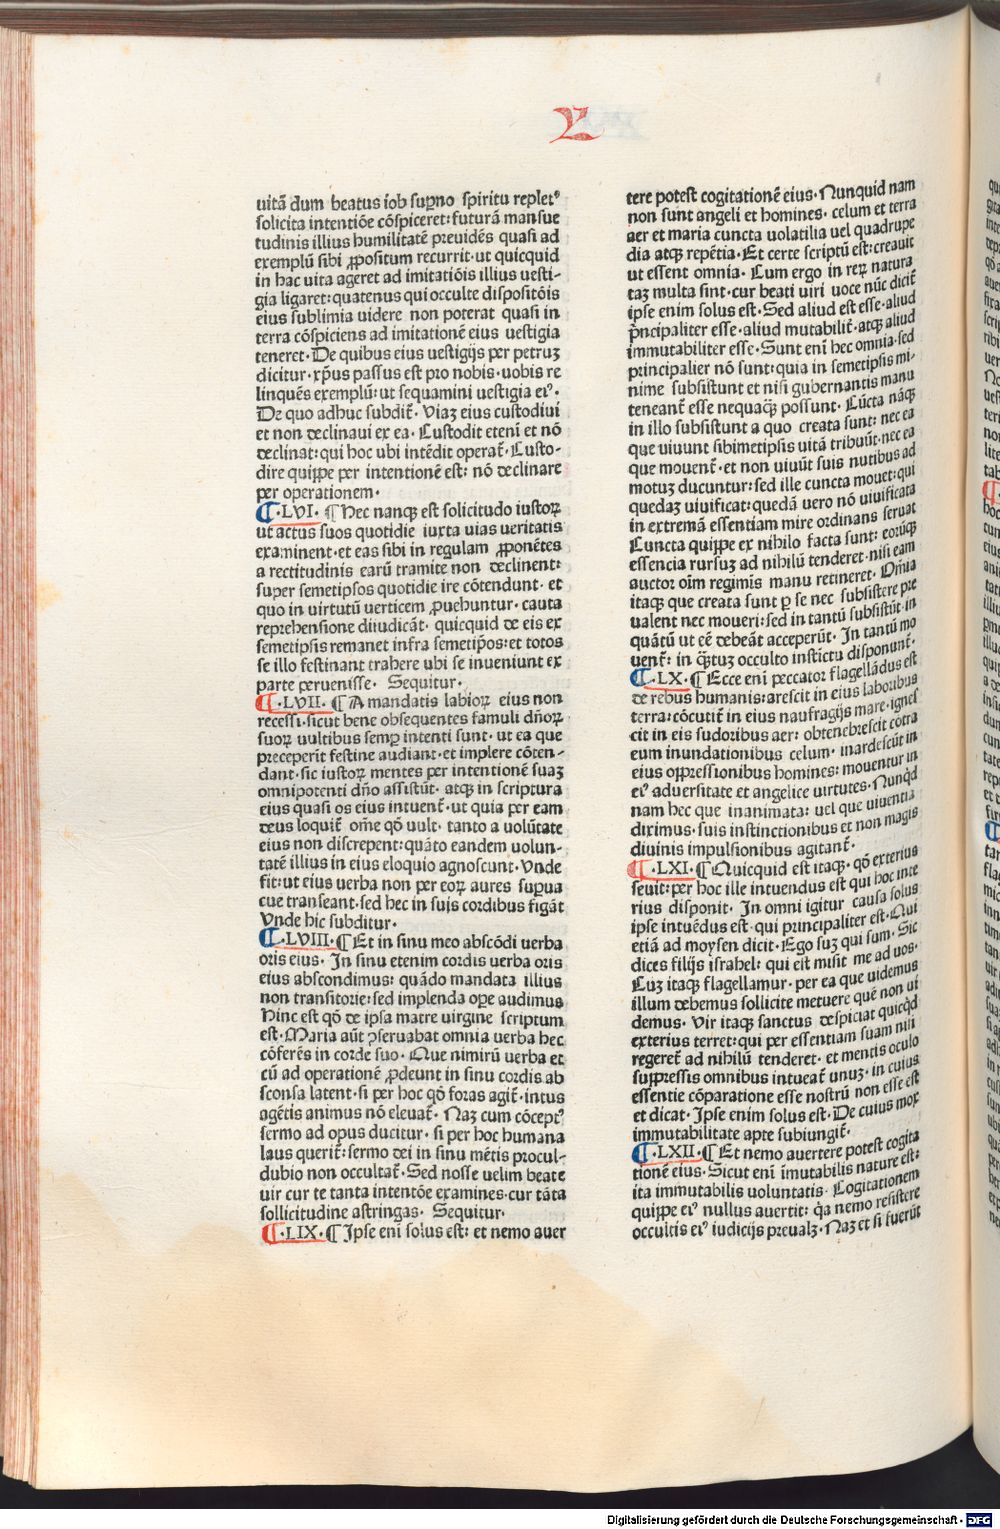 L
uitā dum beatus iob supno spiritu replet⁹
solicita intentiōe cōspiceret: futurā mansue
tudinis illius humilitatē preuidēs quasi ad
exemplū sibi ꝓpositum recurrit· ut quicquid
in hac uita ageret ad imitatiōis illius uesti-
gia ligaret: quatenus qui occulte dispositōis
eius sublimia uidere non poterat quasi in
terra cōspiciens ad imitationē eius uestigia
teneret· De quibus eius uestigijs per petruꝫ
dicitur· xp̄us passus est pro nobis· uobis re
linquēs exemplū: ut sequamini uestigia ei⁹·
De quo adhuc subdit̄· Viaꝫ eius custodiui
et non declinaui ex ea· Custodit eteni et nō
declinat: qui hoc ubi intēdit operat̄· Custo-
dire quippe per intentionē est: nō declinare
per operationem·
¶·LVI· ¶ Hec nanqꝫ est solicitudo iustoꝝ
ut actus suos quotidie iuxta uias ueritatis
examinent· et eas sibi in regulam ꝓponētes
a rectitudinis earū tramite non declinent:
super semetipsos quotidie ire cōtendunt· et
quo in uirtutū uerticem ꝓuehuntur· cauta
reprehensione diiudicāt· quicquid de eis ex
semetipsis remanet infra semetip̄os: et totos
se illo festinant trahere ubi se inueniunt ex
parte peruenisse· Sequitur·
¶·LVII· ¶ A mandatis labioꝝ eius non
recessi· sicut bene obsequentes famuli dn̄oꝝ
suoꝝ uultibus semꝑ intenti sunt· ut ea que
preceperit festine audiant· et implere cōten-
dant· sic iustoꝝ mentes per intentionē suaꝫ
omnipotenti dn̄o assistūt· atqꝫ in scriptura
eius quasi os eius intuent̄· ut quia per eam
deus loquit̄ om̄e qđ uult· tanto a uolūtate
eius non discrepent: quāto eandem uolun-
tatē illius in eius eloquio agnoscunt· Vnde
fit: ut eius uerba non per eoꝝ aures supua
cue transeant· sed hec in suis cordibus figāt
Vnde hic subditur·
¶·LVIII· ¶ Et in sinu meo abscōdi uerba
oris eius· In sinu etenim cordis uerba oris
eius abscondimus: quādo mandata illius
non transitorie: sed implenda oꝑe audimus
Hinc est qđ de ipsa matre uirgine scriptum
est· Maria aūt ꝯseruabat omnia uerba hec
cōferēs in corde suo· Que nimirū uerba et
cū ad operationē ꝓdeunt in sinu cordis ab
sconsa latent· si per hoc qđ foras agit̄· intus
agētis animus nō eleuat̄· Naꝫ cum cōcept⁹
sermo ad opus ducitur· si per hoc humana
laus querit̄: sermo dei in sinu mētis procul-
dubio non occultat̄· Sed nosse uelim beate
uir cur te tanta intentōe examines· cur tāta
sollicitudine astringas· Sequitur·
¶·LIX· ¶ Ipse eni solus est: et nemo auer
tere potest cogitationē eius· Nunquid nam
non sunt angeli et homines· celum et terra
aer et maria cuncta uolatilia uel quadrupe
dia atqꝫ repētia· Et certe scriptū est: creauit
ut essent omnia· Cum ergo in reꝝ natura
taꝫ multa sint· cur beati uiri uoce nūc dicit̄
ipse enim solus est· Sed aliud est esse· aliud
pͥncipaliter esse· aliud mutabilit̄· atqꝫ aliud
immutabiliter esse· Sunt eni hec omnia· sed
principalier nō sunt: quia in semetipsis mi-
nime subsistunt et nisi gubernantis manu
teneant̄ esse nequaqꝫ possunt· Cūcta nāqꝫ
in illo subsistunt a quo creata sunt: nec ea
que uiuunt sibimetipsis uitā tribuūt· nec ea
que mouent̄· et non uiuūt suis nutibus ad
motuꝫ ducuntur: sed ille cuncta mouet: qui
quedaꝫ uiuificat: quedā uero nō uiuificata
in extremā essentiam mire ordinans seruat
Cuncta quippe ex nihilo facta sunt: eorūqꝫ
essencia rursuꝫ ad nihilū tenderet· nisi eam
auctor oīm regimīs manu retineret· Om̄ia
itaqꝫ que creata sunt ꝑ se nec subsistere pre
ualent nec moueri: sed in tantū subsistūt· in
quātū ut eē debeāt acceperūt· In tantū mo
uent̄: in q̄ꝫtuꝫ occulto instictu disponunt̄·
¶·LX· ¶ Ecce eni peccator flagellādus est
de rebus humanis: arescit in eius laboribus
terra: cōcutit̄ in eius naufragijs mare· ignes
cit in eis sudoribus aer: obtenebrescit cōtra
eum inundationibus celum· inardescūt in
eius oppressionibus homines: mouentur in
ei⁹ aduersitate et angelice uirtutes· Nunqͥd
nam hec que inanimata: uel que uiuentia
diximus· suis instinctionibus et non magis
diuinis impulsionibus agitant̄·
¶·LXI· ¶ Quicquid est itaqꝫ· qđ exterius
seuit: per hoc ille intuendus est qui hoc inte
rius disponit· In omni igitur causa solus
ipse intuēdus est· qui principaliter est· Qui
etiā ad moysen dicit· Ego suꝫ qui sum· Sic
dices filijs israhel: qui est misit me ad uos·
Cuꝫ itaqꝫ flagellamur· per ea que uidemus
illum debemus sollicite metuere quē non ui
demus· Vir itaqꝫ sanctus despiciat quicqͥd
exterius terret: qui per essentiam suam nisi
regeret̄ ad nihilū tenderet· et mentis oculo
suppressis omnibus intueat̄ unuꝫ· in cuius
essentie cōparatione esse nostrū non esse est
et dicat· Ipse enim solus est· De cuius mox
immutabilitate apte subiungit̄·
¶·LXII· ¶ Et nemo auertere potest cogita
tionē eius· Sicut eni īmutabilis nature est:
ita immutabilis uoluntatis· Cogitationem
quippe ei⁹ nullus auertit: qͣ nemo resistere
occultis ei⁹ iudicijs preualꝫ· Naꝫ et si fuerūt
Digitalisierung gefördert durch die Deutsche Forschungsgemeinschaft - DFG